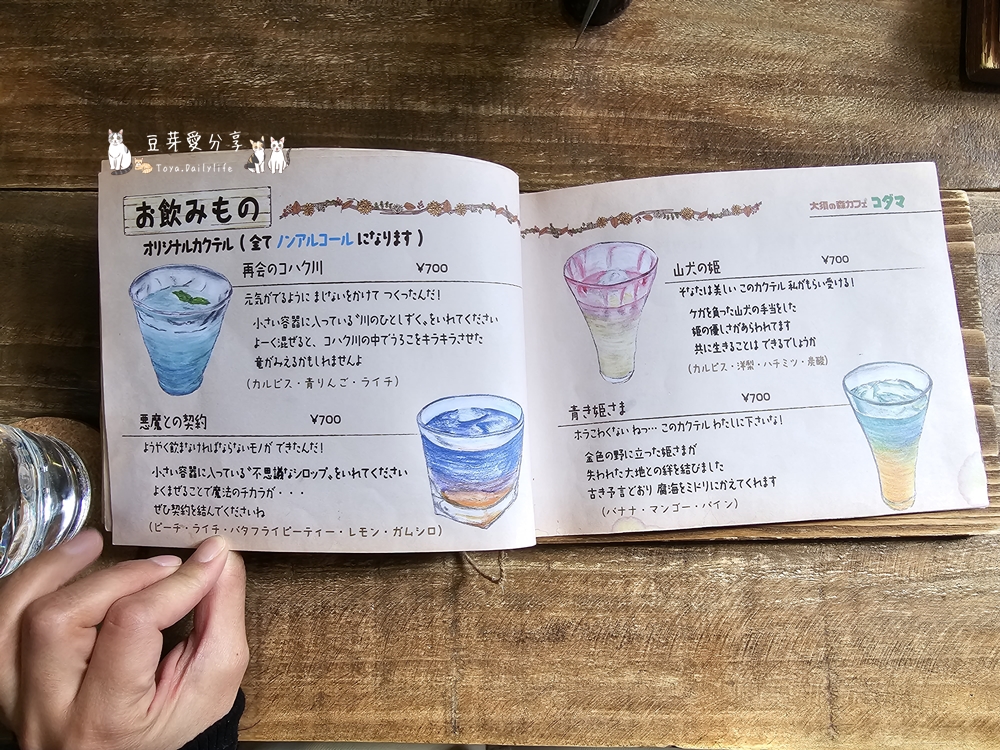 豆芽愛分享
Toya.Dailylife
お飲みもの
オリジナルカクテル(全てノンアルコールになります)
再会のコハク川 ¥700
元気がでるように まじないをかけて つくったんだ!
小さい容器に入っている"川のひとしずく"をいれてください
よーく混ぜると、コハク川の中でうろこをキラキラさせた
竜がみえるかもしれませんよ
(カルピス・青りんご・ライチ)
悪魔との契約 ¥700
ようやく飲まなければならないモノが できたんだ!
小さい容器に入っている"不思議なシロップ"をいれてください
よくまぜることで魔法のチカラが・・・
ぜひ契約を結んでくださいね
(ピーチ・ライチ・バタフライピーティー・レモン・ガムシロ)
大須の森カフェ コダマ
山犬の姫 ¥700
そなたは美しい このカクテル 私がもらい受ける!
ケガを負った山犬の手当をした
姫の優しさがあらわれてます
共に生きることは できるでしょうか
(カルピス・洋梨・ハチミツ・炭酸)
青き姫さま ¥700
ホラこわくない ねっ… このカクテル わたしに下さいな!
金色の野に立った姫さまが
失われた大地との絆を結びました
古き予言どおり 腐海をミドリにかえてくれます
(バナナ・マンゴー・パイン)